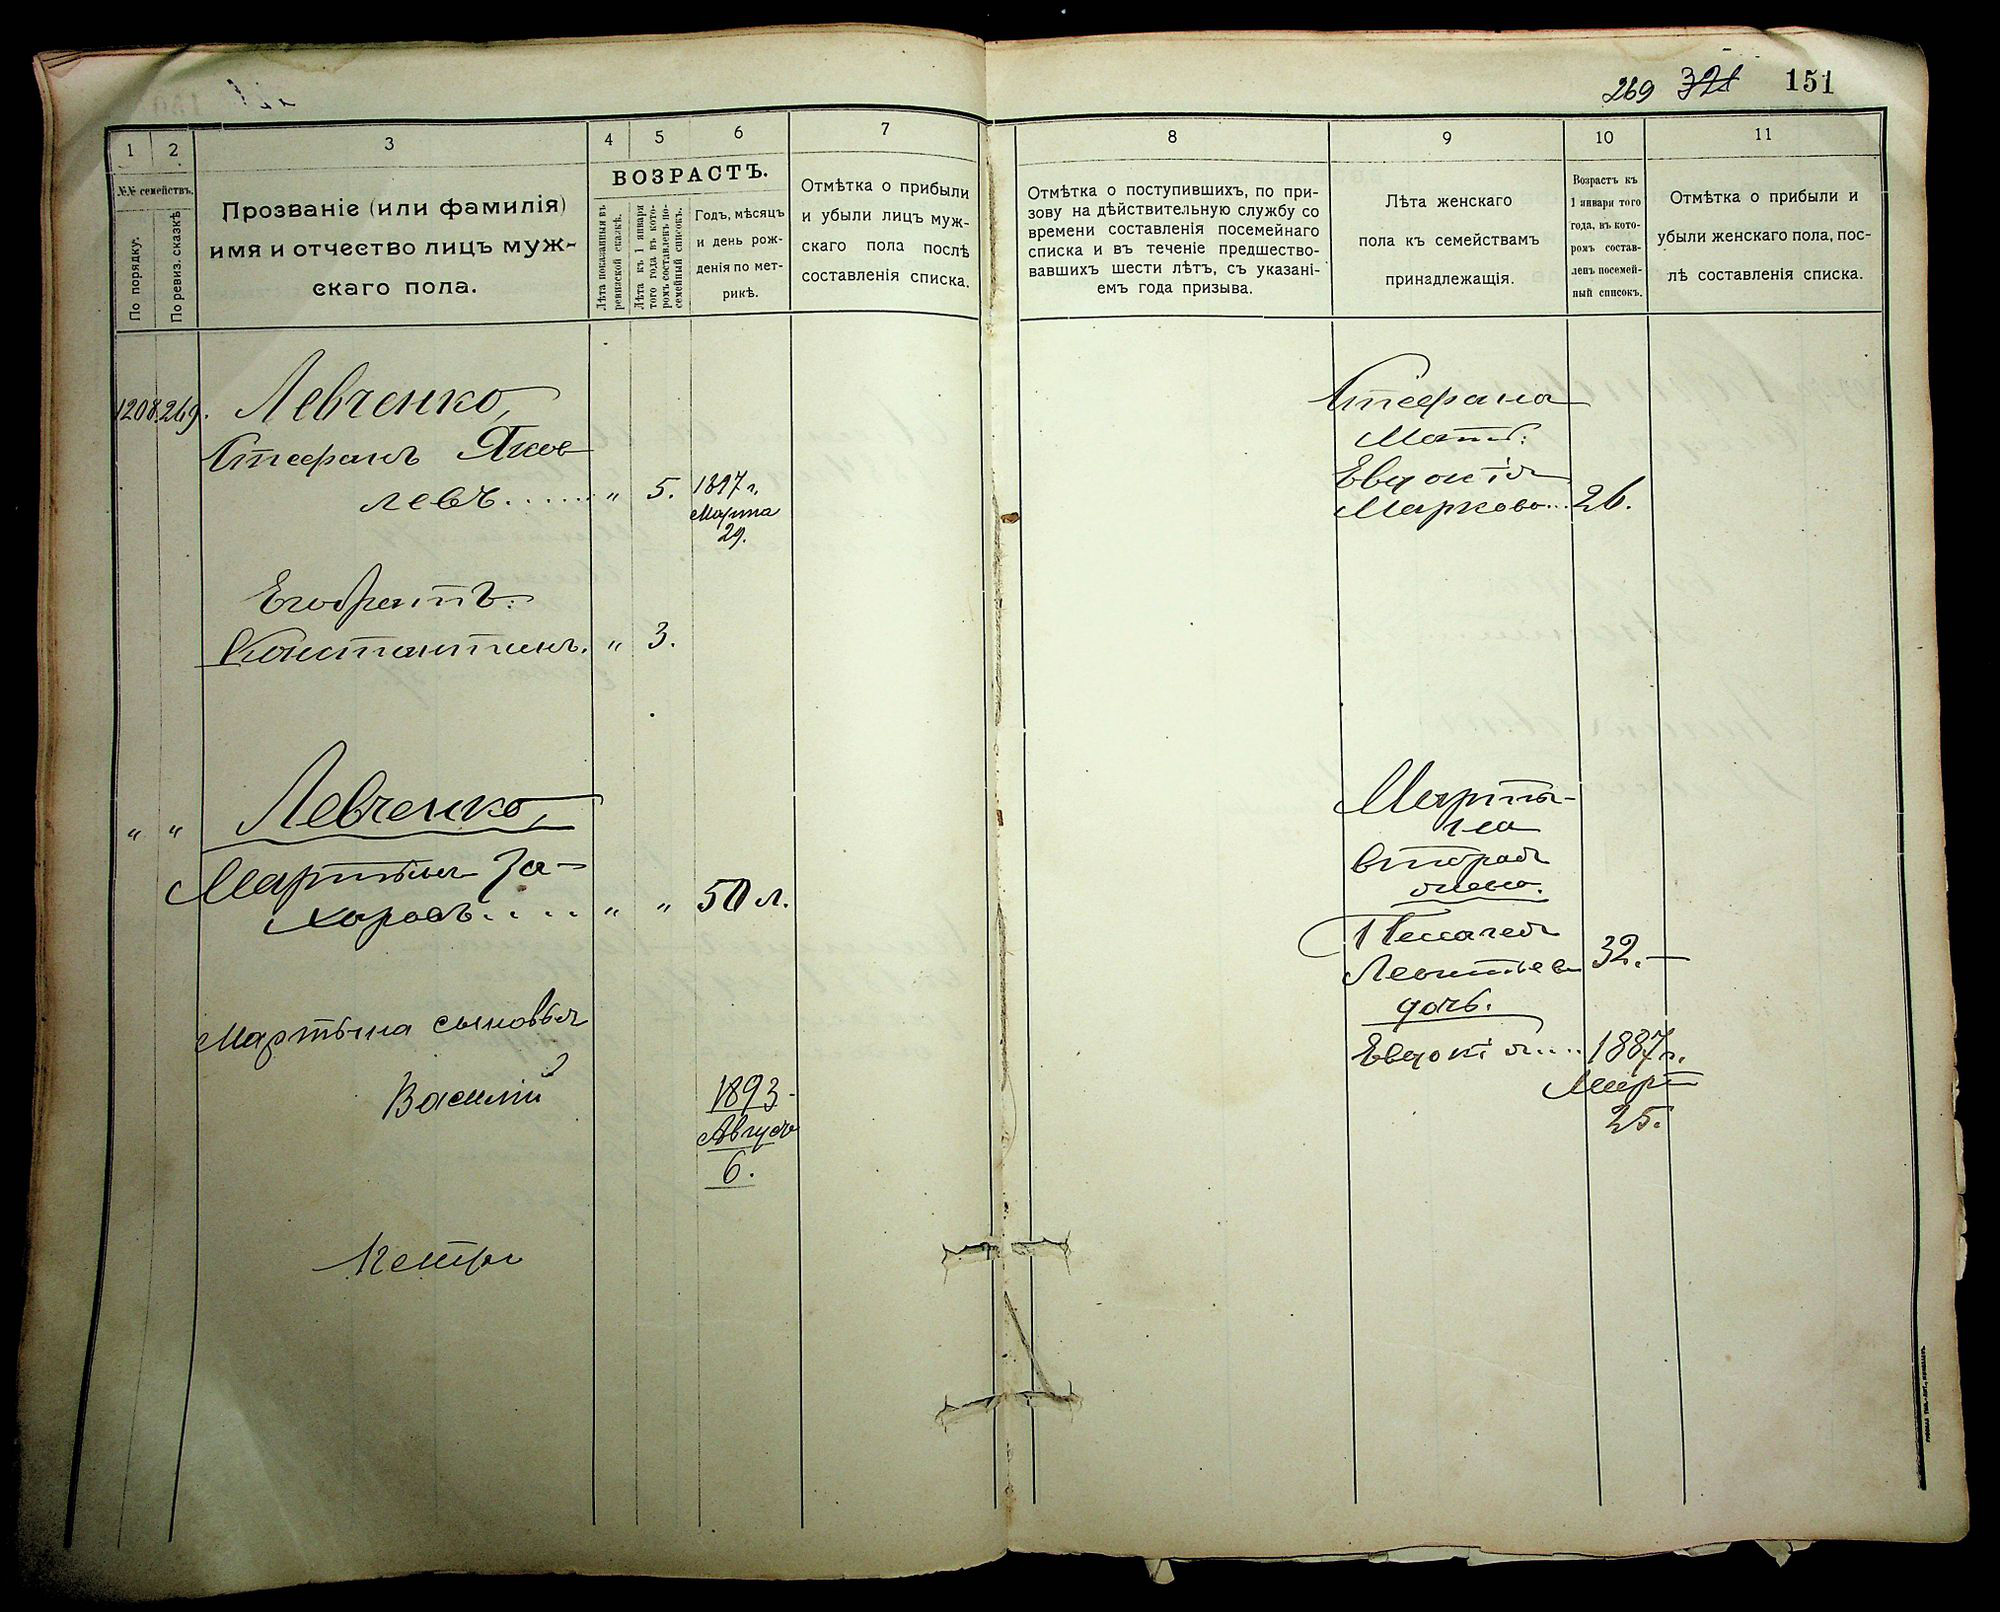 269 321 151
1 2 3 4 5 6 7
№№ семействъ.
По порядку.
По ревиз. сказкѣ
Прозваніе (или фамилія)
имя и отчество лицъ муж-
скаго пола.
ВОЗРАСТЪ.
Лѣта показанныя въ
ревизской сказкѣ.
Лѣта къ 1 января
того года въ кото-
ромъ составленъ по-
семейный списокъ.
Годъ, мѣсяцъ
и день рож-
денія по мет-
рикѣ.
Отмѣтка о прибыли
и убыли лицъ муж-
скаго пола послѣ
составленія списка.
1208. 269. Левченко,
Стефанъ Яков
левъ...... " 5. 1897 г.
Марта
29.
Его братъ:
Константинъ. " 3.
" " Левченко,
Мартынъ За-
харовъ..... " " 50 л.
Мартына сыновья
Василій 1893
Августъ
6.
Петръ
8 9 10 11
Отмѣтка о поступившихъ, по при-
зову на дѣйствительную службу со
времени составленія посемейнаго
списка и въ теченіе предшество-
вавшихъ шести лѣтъ, съ указані-
емъ года призыва.
Лѣта женскаго
пола къ семействамъ
принадлежащія.
Возрастъ къ
1 января того
года, въ кото-
ромъ состав-
ленъ посемей-
ный списокъ.
Отмѣтка о прибыли и
убыли женскаго пола, пос-
лѣ составленія списка.
Стефана
Мать:
Евдокія
Маркова... 26.
Марты-
на
вторая
жена.
Пелагея
Леонтьев 32.—
дочь.
Евдокія.... 1887 г.
Март
25.